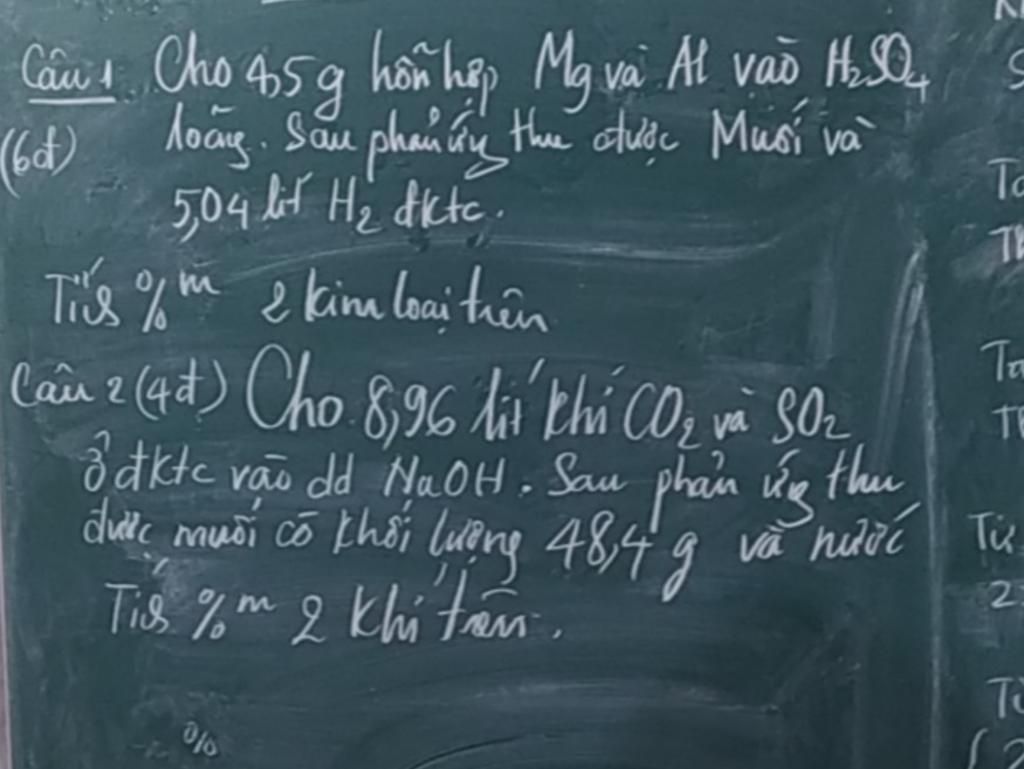 Câu 1 Cho 4,5g hỗn hợp Mg và Al vào H₂SO₄
(6đ) loãng. Sau phản ứng thu được Muối và
5,04 lít H₂ đktc.
Tính %m 2 kim loại trên
Câu 2 (4đ) Cho 8,96 lít khí CO₂ và SO₂
ở đktc vào dd NaOH. Sau phản ứng thu
được muối có khối lượng 48,4 g và nước
Tính %m 2 khí trên.
%